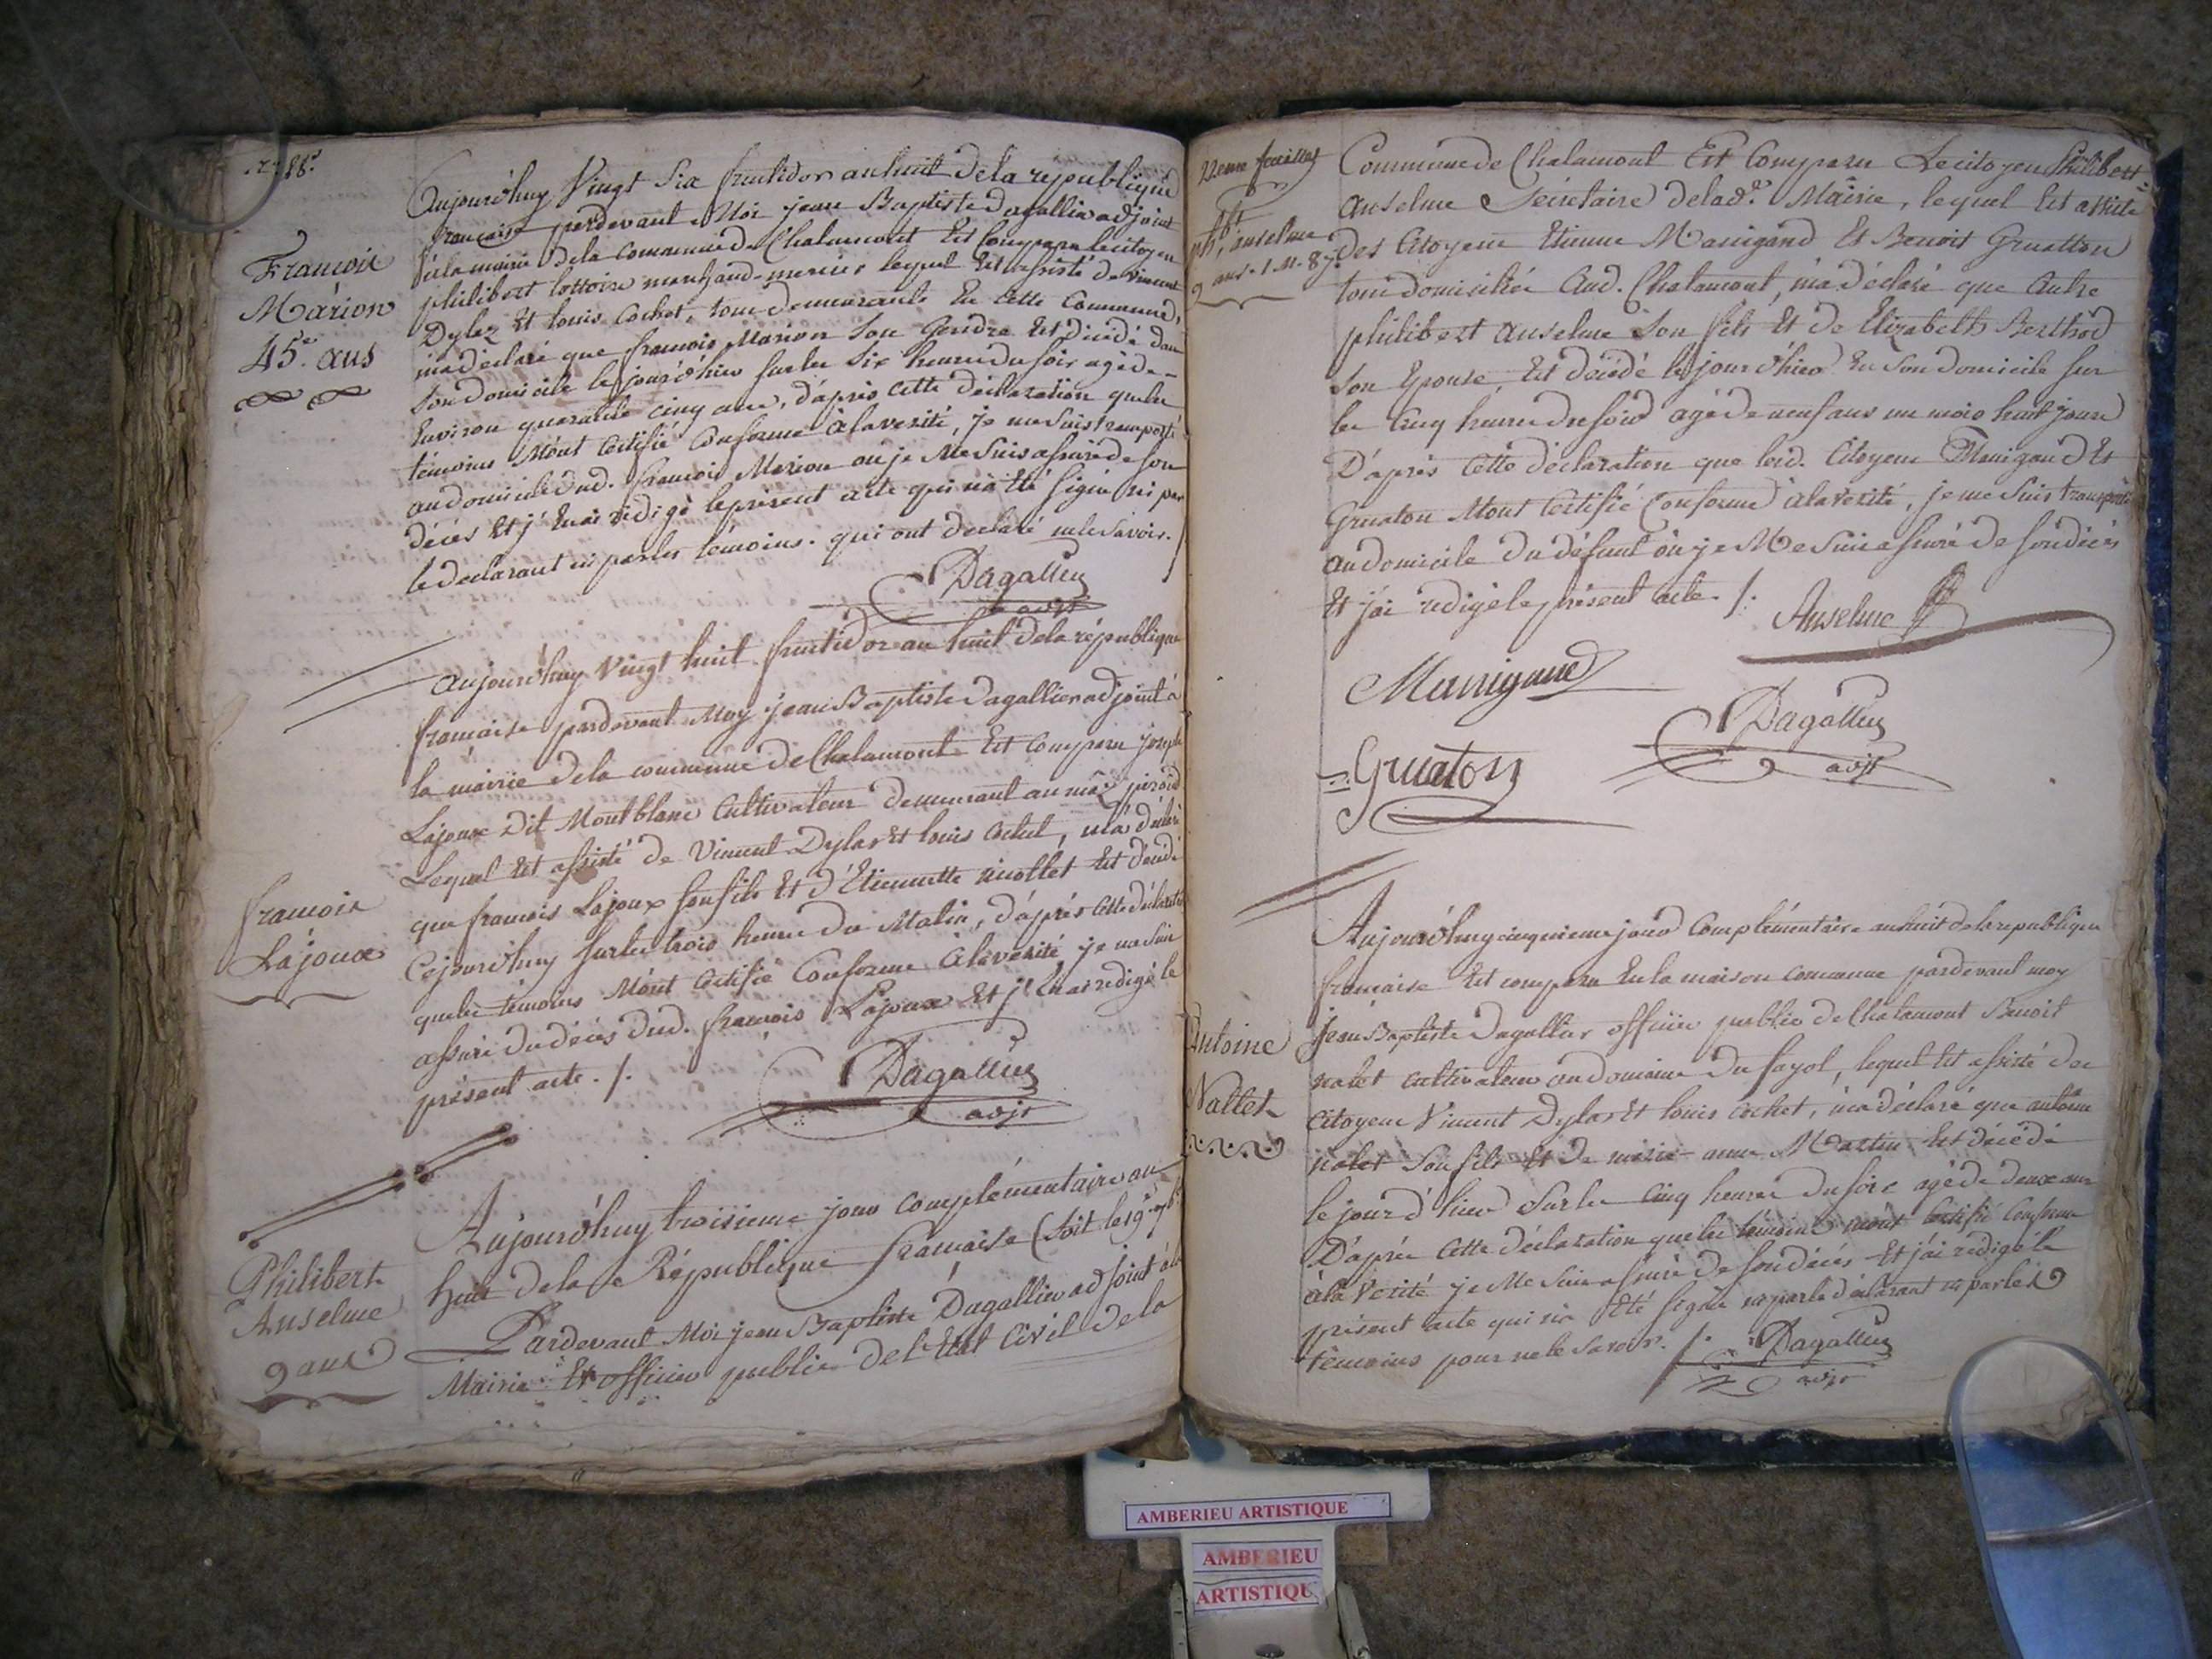 François
Marion
45.e ans
Aujourdhuy Vingt Six fructidor an huit de la republique
francaise pardevant Moi jean Baptiste Dagallier adjoint
a la mairie de la commune de Chalamont Est Comparu le citoyen
philibert lottoire marchand mercier lequel Est assisté de vincent
Dylas Et louis Cochet, tous demeurants En cette Commune,
m'a déclaré que francois Marion Son Gendre Est décédé dans
Son domicile le jour d'hier sur les Six heures du soir agé d-
Environ quarante cinq ans, d'après cette déclaration que les
témoins M'ont Certifié Conforme à la verité, je me suis transporté
au domicile dud. francois Marion ou je Me suis assuré de son
décès Et j'En ai rédigé le présent acte qui n'a Eté signé ni par
le declarant ni par les témoins. qui ont declaré ne le savoir.
Dagallier
adjt
françois
Lajoux
Aujourdhuy Vingt huit fructidor an huit de la république
francaise pardevant Moy jean Baptiste Dagallier adjoint à
la mairie de la commune de Chalamont Est Comparu joseph
Lajoux dit Montblanc Cultivateur demeurant au
Lequel Est assisté de Vincent Dylas Et louis Cochet, m'a déclaré
que francois Lajoux son fils Et d'Etiennette nicollet Est décédé
Cejourdhuy sur les trois heures du Matin, d'après cette déclaration
que les témoins M'ont Certifié Conforme à la verité je me suis
assuré du décès dud. francois Lajoux Et j'En ai redigé le
présent acte. /.
Dagallier
adjt
Philibert
Anselme
9 ans
Aujourdhuy troisieme jour complémentaire an
huit de la République francaise (soit le 19 7b.
Pardevant Moi jean Baptiste Dagallier adjoint à la
Mairie Et officier public de l'Etat Civil de la
anselme
9 ans 1. M. 8 j.
Commune de Chalamont Est Comparu Le citoyen Philibert
Anselme Secretaire de lad.e Mairie, lequel Est assisté
des Citoyens Etienne Manigand Et Benoit Gruatton
tous domiciliés aud. Chalamont, m'a déclaré que Autre
philibert anselme Son fils Et de Elizabeth Berthod
Son Epouse, Est décédé le jour d'hier En Son domicile sur
les Cinq heures du soir agé de neuf ans un mois huit jours
D'après Cette déclaration que lesd. Citoyens Manigand Et
Gruaton M'ont Certifié Conforme à la Verité, je me suis transporté
au domicile du défunt où je Me suis assuré de son décès
Et j'ai redigé le présent acte. /.
Anselme
Manigand
Dagallier
adjt
Gruaton
Antoine
Nallet
Aujourdhuy cinquieme jour Complémentaire an huit de la republique
francaise Est comparu En la maison commune pardevant moy
jean Baptiste Dagallier officier public de Chalamont Benoit
nalet cultivateur au domaine du fayol, lequel Est assisté des
Citoyens Vincent Dylas Et louis cochet, m'a déclaré que antoine
nalet Son fils Et de marie anne Martin Est décédé
le jour d'hier Sur les Cinq heures du soir agé de deux ans
D'après Cette déclaration que les témoins m'ont certifié Conforme
à la Verité je Me suis assuré de son décès Et j'ai redigé le
présent acte qui n'a Eté signé ni par le déclarant ni par les
témoins pour ne le savoir. /.
Dagallier
adjt
AMBERIEU ARTISTIQUE
AMBERIEU
ARTISTIQU